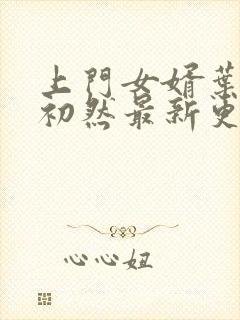 上門女婿葉
初然最新更
心心妞